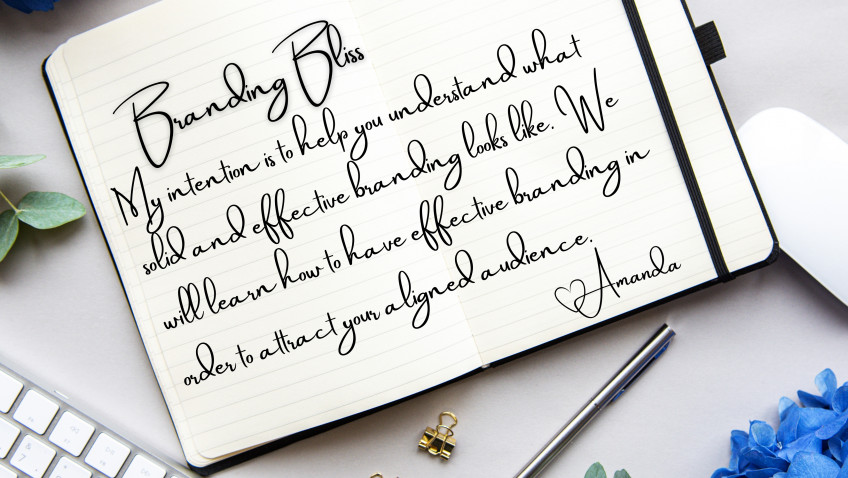 Branding Bliss
My intention is to help you understand what
solid and effective branding looks like. We
will learn how to have effective branding in
order to attract your aligned audience.
♡Amanda